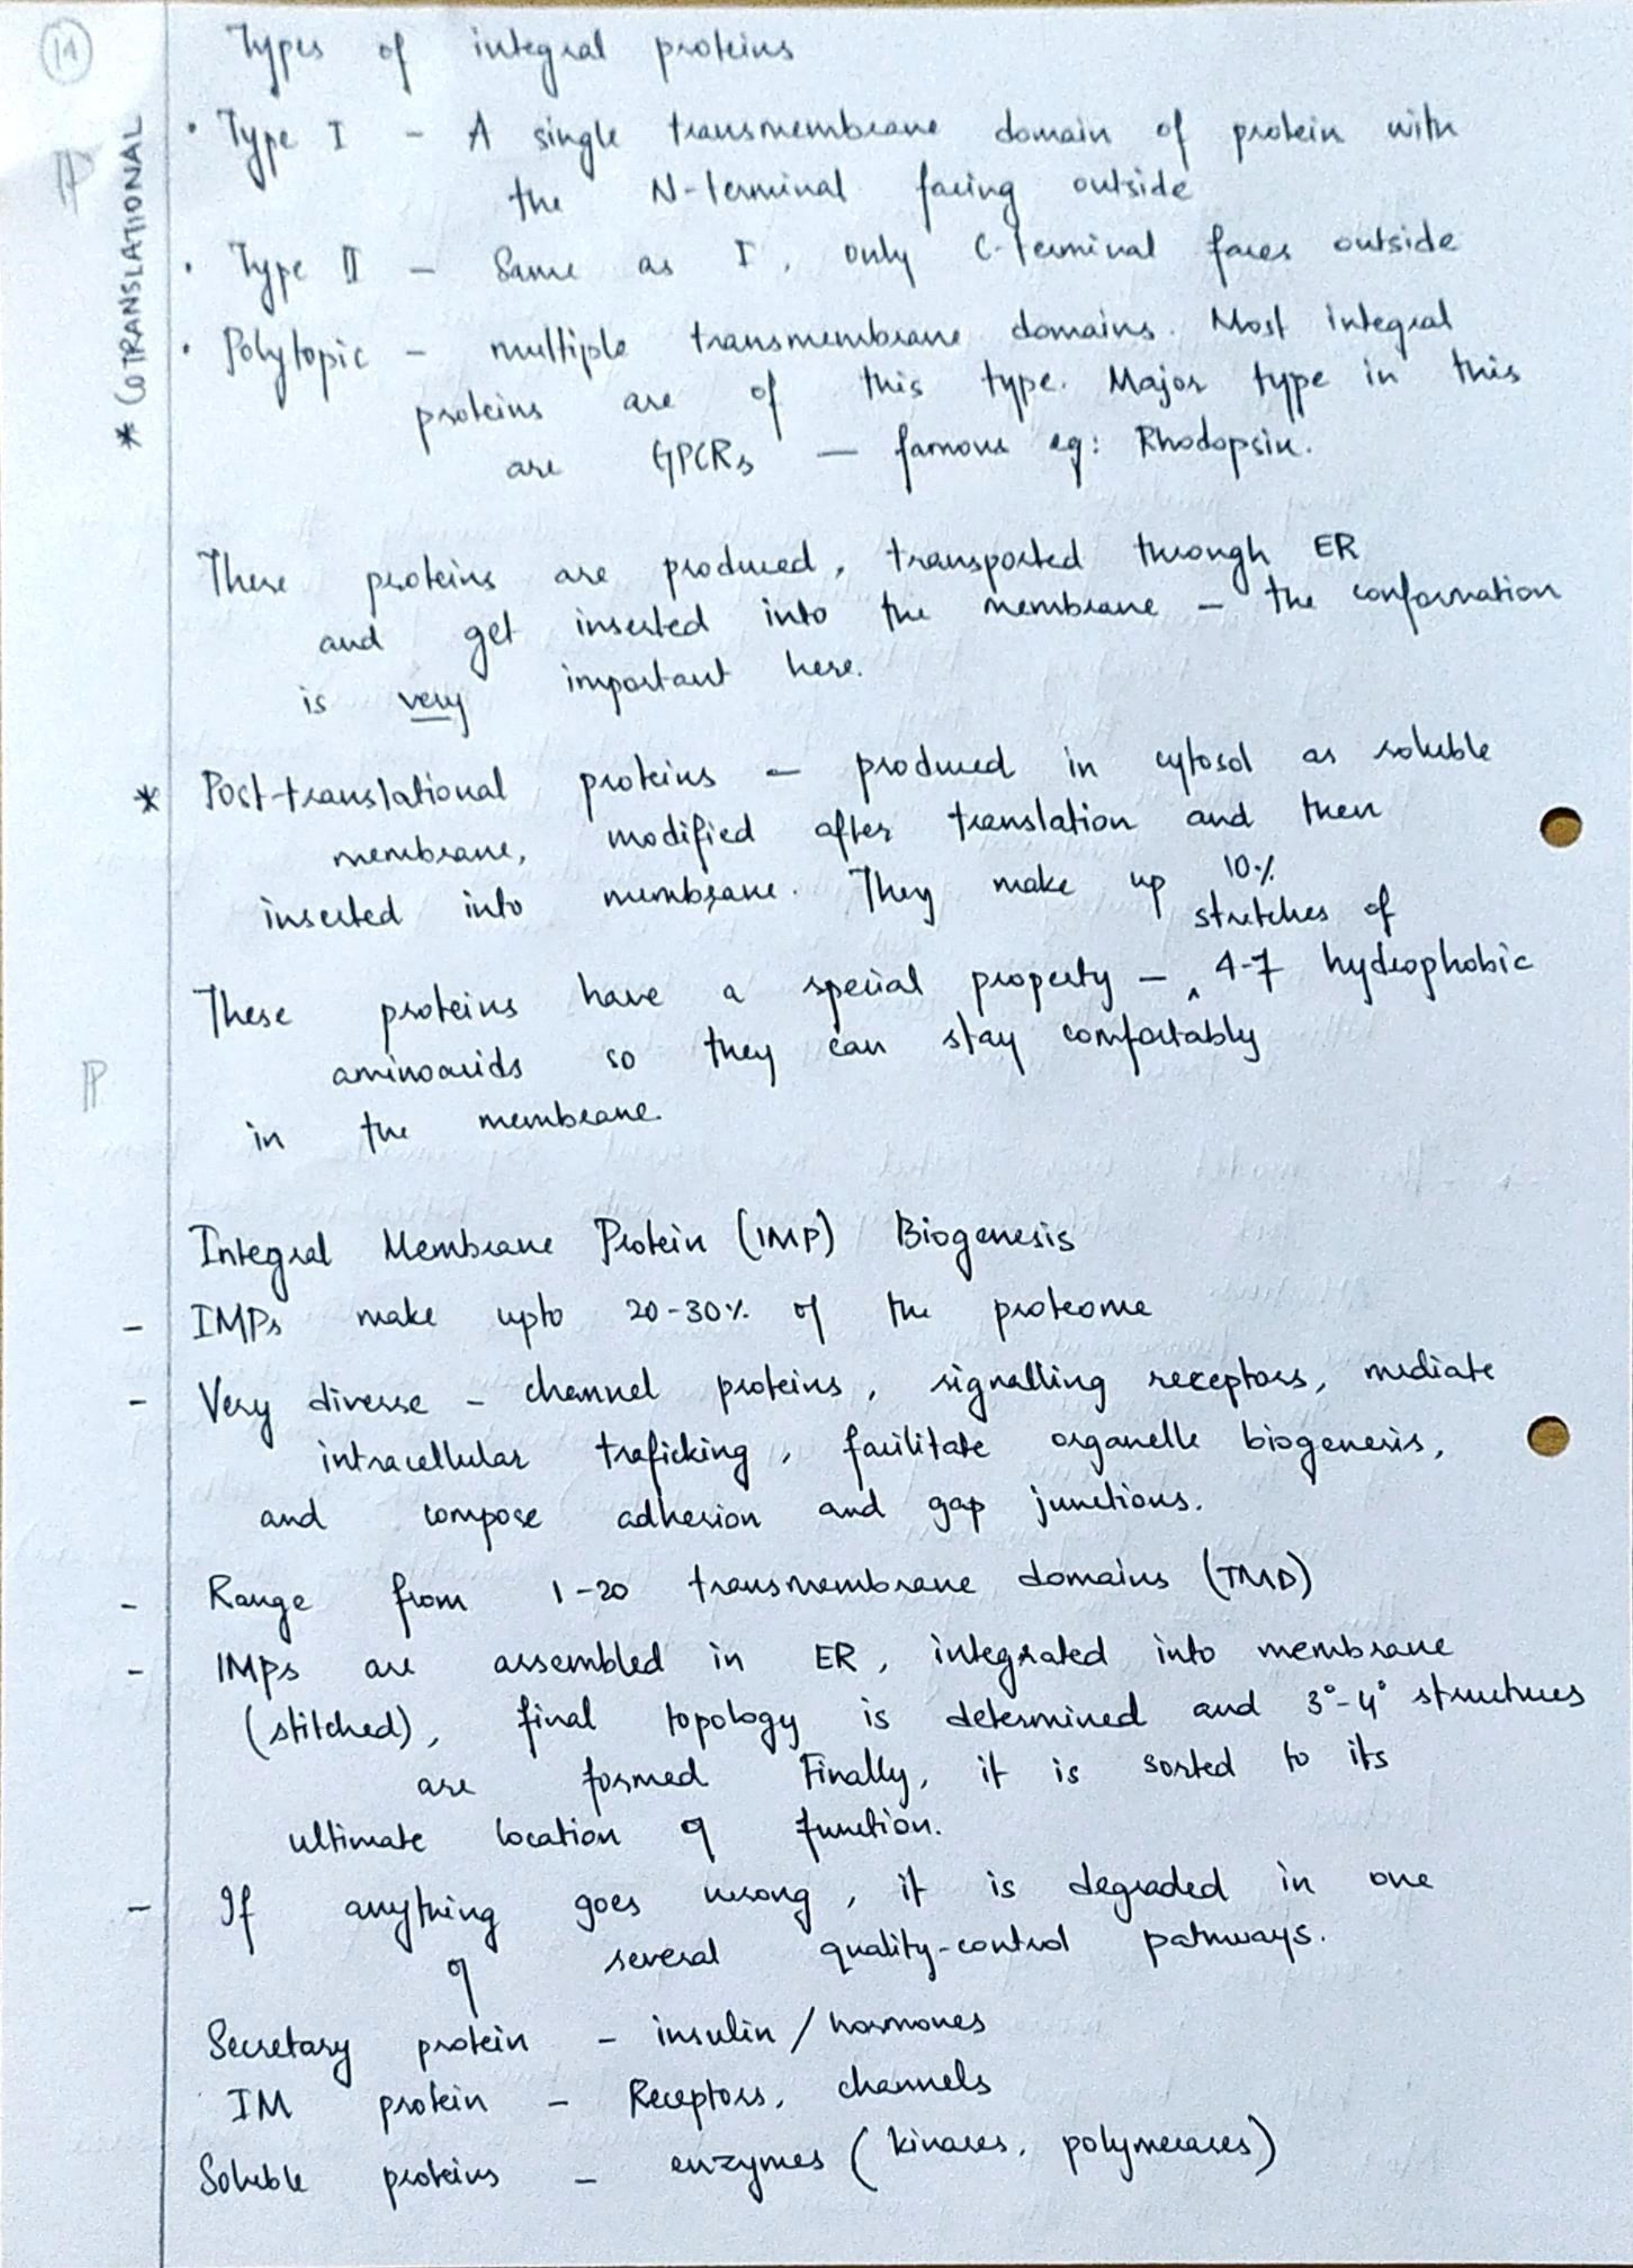 11
Types of integral proteins
* COTRANSLATIONAL
• Type I - A single transmembrane domain of protein with
the N-terminal facing outside
• Type II - Same as I, only C-terminal faces outside
• Polytopic - multiple transmembrane domains. Most integral
proteins are of this type. Major type in this
are GPCRs — famous eg: Rhodopsin.
These proteins are produced, transported through ER
and get inserted into the membrane - the conformation
is very important here.
* Post-translational proteins - produced in cytosol as soluble
membrane, modified after translation and then
inserted into membrane. They make up 10%
stretches of
These proteins have a special property - ^ 4-7 hydrophobic
aminoacids so they can stay comfortably
in the membrane.
Integral Membrane Protein (IMP) Biogenesis
- IMPs make upto 20-30% of the proteome
- Very diverse - channel proteins, signalling receptors, mediate
intracellular traficking, facilitate organelle biogenesis,
and compose adhesion and gap junctions.
- Range from 1-20 transmembrane domains (TMD)
- IMPs are assembled in ER, integrated into membrane
(stitched), final topology is determined and 3°-4° structures
are formed Finally, it is sorted to its
ultimate location of function.
- If anything goes wrong, it is degraded in one
of several quality-control pathways.
Secretary protein - insulin / hormones
IM protein - Receptors, channels
Soluble proteins - enzymes (kinases, polymerases)